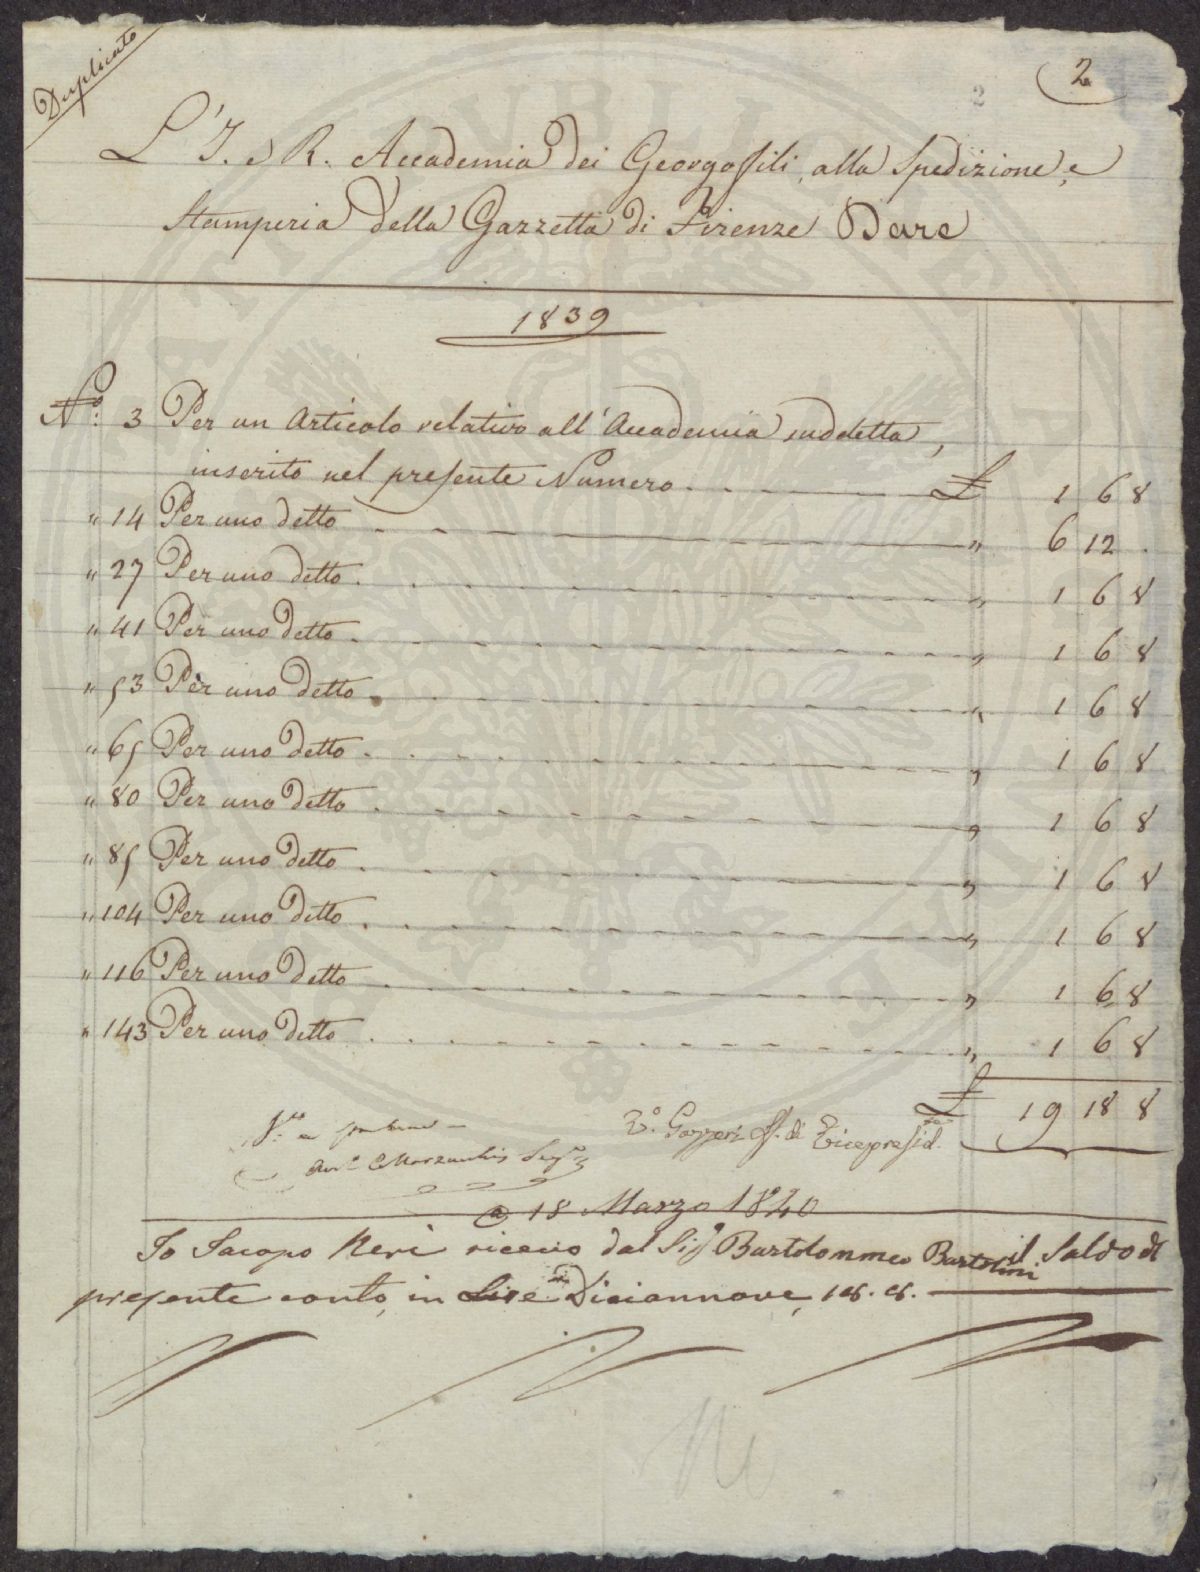 Duplicato
2
2
L'I. e R. Accademia dei Georgofili, alla Spedizione, e
Stamperia della Gazzetta di Firenze Dare
1839
N.º 3 Per un Articolo relativo all'Accademia suddetta,
inserito nel presente Numero £ 1 6 8
" 14 Per uno detto " 6 12 .
" 27 Per uno detto " 1 6 8
" 41 Per uno detto " 1 6 8
" 53 Per uno detto " 1 6 8
" 65 Per uno detto " 1 6 8
" 80 Per uno detto " 1 6 8
" 85 Per uno detto " 1 6 8
" 104 Per uno detto " 1 6 8
" 116 Per uno detto " 1 6 8
" 143 Per uno detto " 1 6 8
£ 19 18 8
V.º Gazzeri ff. di Vicepresid.te
a 18 Marzo 1840
Io Jacopo Neri ricevo dal Sig. Bartolommeo Bartolini il Saldo del
presente conto, in Lire Diciannove, 18. 8.